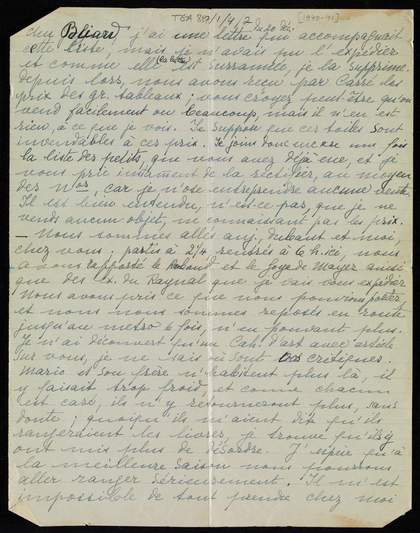 TGA 887/1/4/7 [1940-41]
cher Bliard, j'ai une lettre qui accompagnait
cette liste; mais je n'avais pu l'expédier
et comme elle (la lettre) est surannée, je la supprime.
depuis lors, nous avons reçu par Carré les
prix des gr. tableaux; vous croyez peut'être qu'on
vend facilement ou beaucoup, mais il n'en est
rien, à ce que je vois. Je suppose que ces toiles sont
invendables à ces prix. Je joins donc encore une fois
la liste des petits, que vous avez déjà eue, et je
vous prie instamment de la rectifier, au moyen
des Nos, car je n'ose entreprendre aucune vente.
Il est bien entendu, n'est-ce pas, que je ne
vends aucun objet, ne connaissant pas les prix.
— Nous sommes allés auj. et moi,
chez vous: partis à 2 1/4 rentrés à 6 h. ici, nous
avons rapporté le et le Goya de Mayer ainsi
que des ex. du Raynal que je vais vous expédier
Nous avons pris ce que nous pouvions porter
et nous nous sommes reposés en route
jusqu'au métro 6 fois, n'en pouvant plus.
Je n'ai découvert qu'un Cah. d'art avec article
sur vous, je ne sais où sont vos critiques.
Mario et son frère n'habitent plus là, il
y faisait trop froid et comme chacun
est casé, ils n'y retourneront plus, sans
doute; quoiqu'ils m'aient dit qu'ils
rangeraient les livres, je trouve qu'ils y
ont mis plus de désordre. J'espère qu'à
la meilleure saison nous pourrons
aller ranger sérieusement. Il m'est
impossible de tout prendre chez moi